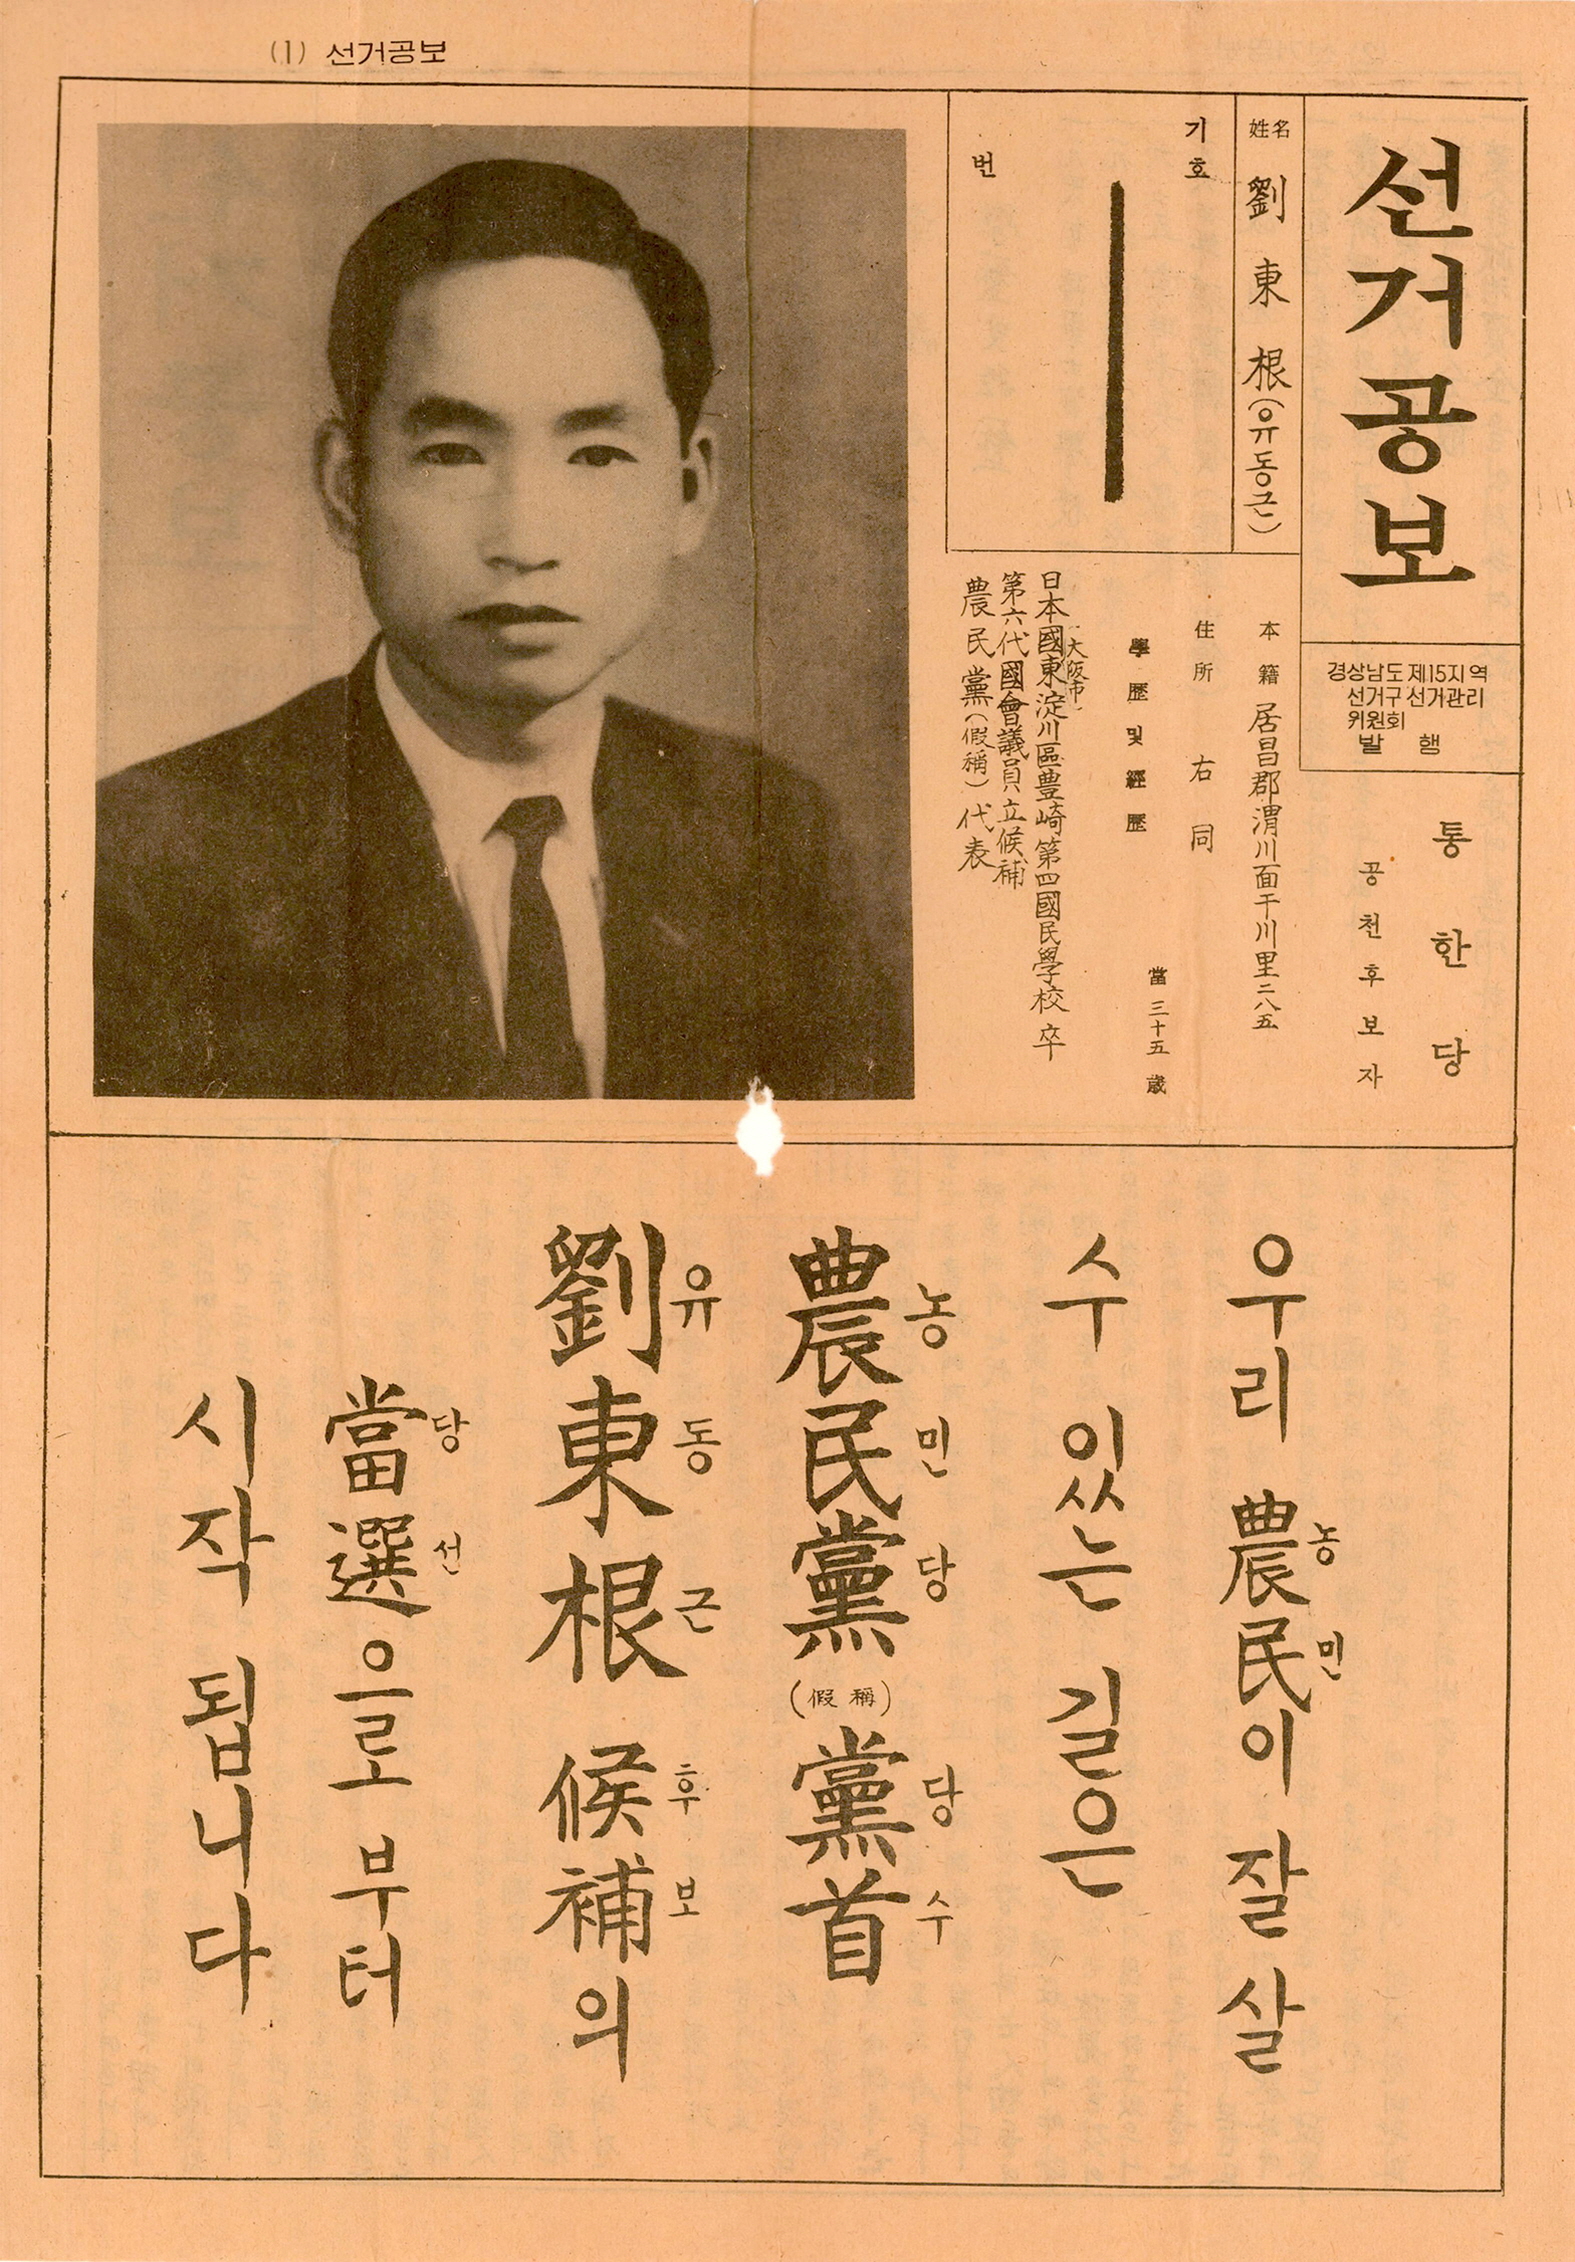 (1) 선거공보
선거공보
경상남도 제15지역
선거구 선거관리
위원회
발행
통한당
공천후보자
姓名 劉東根(유동근)
기호
번
本籍 居昌郡渭川面干川里二八五
住所 右同
當三十五歲
學歷 및 經歷
(大阪市)
日本國東淀川區豊崎第四國民學校卒
第六代國會議員立候補
農民黨(假稱)代表
우리 農民이 잘 살
농민
수 있는 길은
農民黨(假稱)黨首
농민당 당수
劉東根 候補의
유동근 후보
當選으로 부터
당선
시작 됩니다